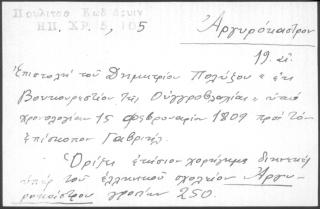 Πουλίτσα Κωδ
ΗΠ. ΧΡ. 5, 105
Ἀργυρόκαστρον
19. αἰ.
Ἐπιστολὴ τοῦ Δημητρίου Πολύζου « ἐκ
Βουκουρεστίου τῆς Οὐγγροβλαχίας » ὑπὸ
χρονολογίαν 15 φεβρουαρίου 1809 πρὸς τὸν
ἐπίσκοπον Γαβριήλ.
Ὁρίζει ἐτήσιον χορήγημα
ὑπὲρ τοῦ ἑλληνικοῦ σχολείου Ἀργυ-
ροκάστρου γροσίων 250.